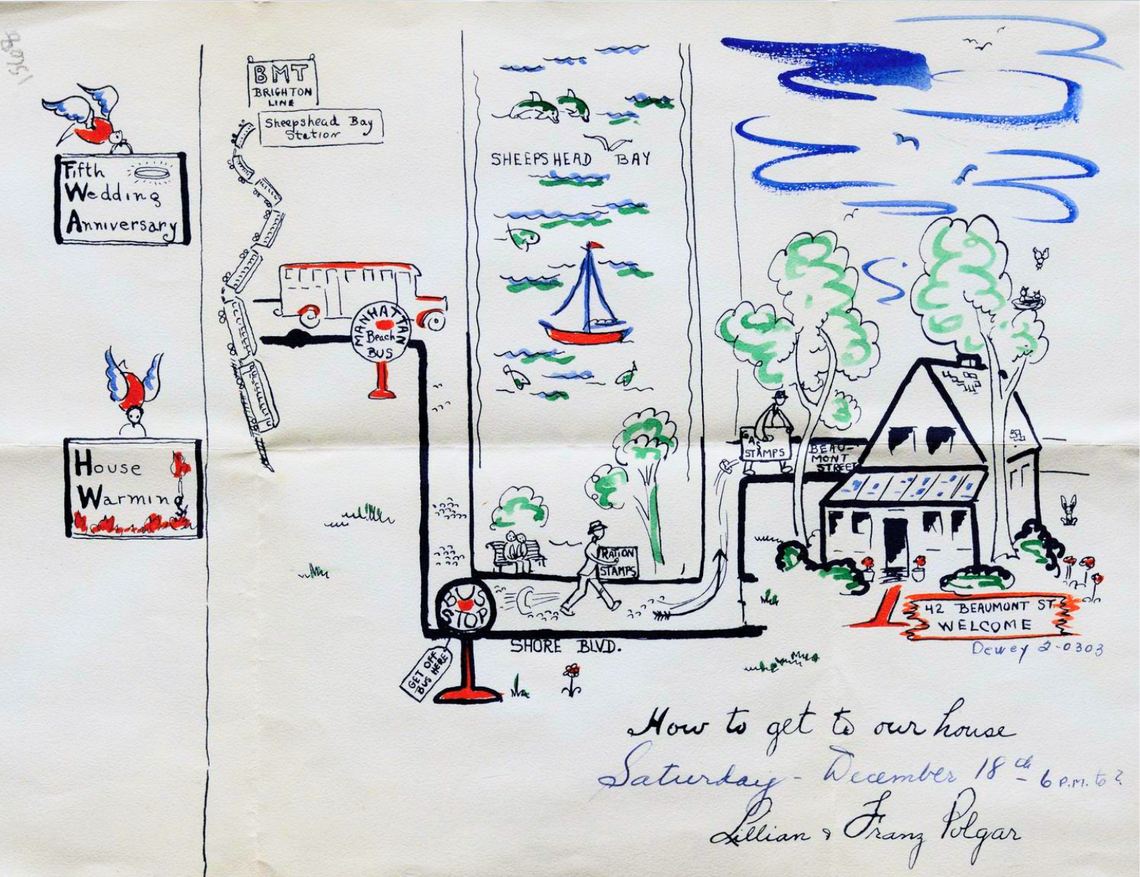 Fifth
Wedding
Anniversary
House
Warming
BMT
BRIGHTON
LINE
Sheepshead Bay
Station
MANHATTAN
Beach
BUS
SHEEPSHEAD BAY
GAS
STAMPS
BEAU-
MONT
STREET
RATION
STAMPS
BUS
STOP
GET OFF
BUS HERE
SHORE BLVD.
42 BEAUMONT ST.
WELCOME
Dewey 2-0303
How to get to our house
Saturday - December 18th - 6 P.M. to ?
Lillian & Franz Polgar